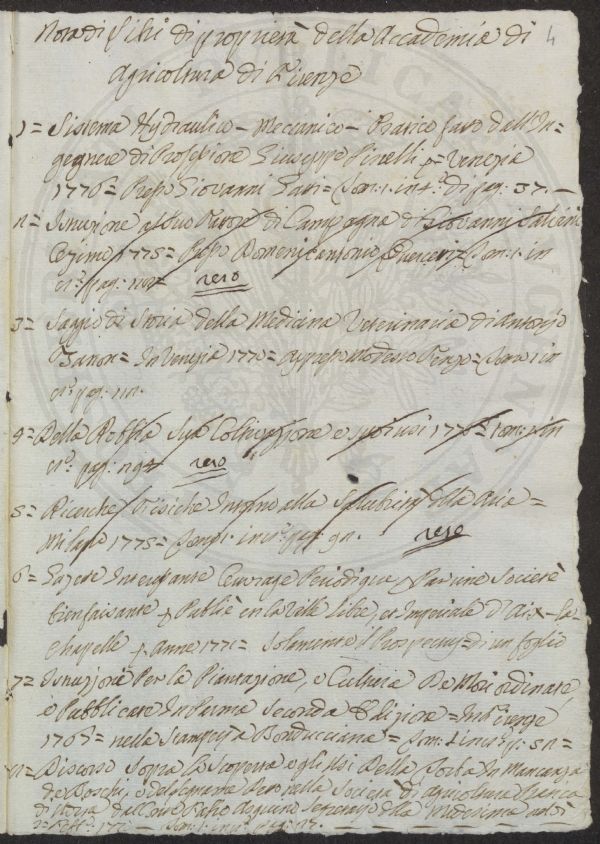 Nota di Libri di proprietà della Accademia di 4
Agricoltura di Firenze
1= Sistema Hydraulico – Meccanico – Pratico fatto dall'In=
gegnere di Professione Giuseppe p= Venezia
1776= Presso Giovanni = Tom: 1. in 4º. di pag: 37. –
2= Istruzione al suo Fattore di Campagna di Giovanni
1775= Presso Domenicantonio = Tom: 1. in
8º. pag:
reso
3= Saggio di Storia della Medicina Veterinaria di Antonio
Zanon= In Venezia 1770= Appresso Modesto Fenzo= Tomo 1 in
8º. pag: 111.
4= Della Robbia sua Coltivazione e suoi usi 1776= Tom: 1. in
8º. pag: 194
reso
5= Ricerche Fisiche Intorno alla Salubrità della Aria=
Milano 1775= Tom: 1. in 8º. pag:
reso
6= Gazete Interessante Ouvrage Periodique, Par une Societè
bienfaisante & Publiè en la Ville Libre, et Imperiale d'Aix-la-
Chapelle Anne 1771= Solamente il Prospectus di un foglio
7= Istruzione Per la Piantazione, e Cultura De Mori ordinate,
e Pubblicate In Parma Seconda Edizione= In Firenze
1765= nella Stamperia Bonducciana= Tom: 1. in 8º. p:
Discorso Sopra la Scoperta e gli Usi Della Torba In Mancanza
de Boschi, e Della Società di Agricoltura
di Pietro Arduino Segretario della Medesima